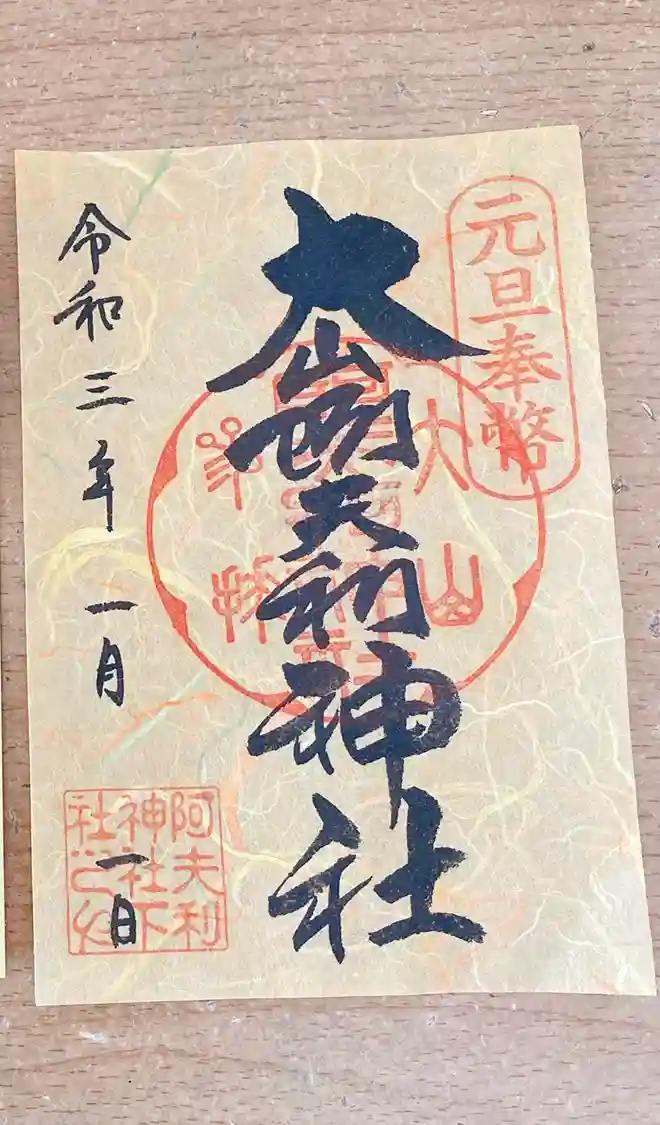 元旦奉幣
大山阿夫利神社
大山
令和三年一月
一日
阿夫利
神社下
社之印